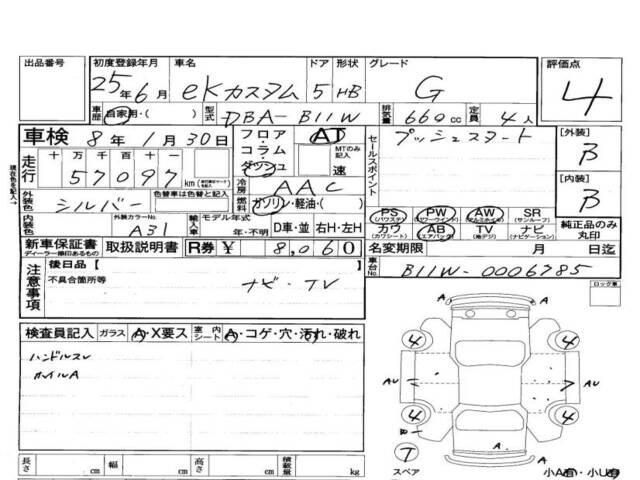 出品番号
初度登録年月 車名 ドア 形状 グレード 評価点
25年6月 eKカスタム 5 HB G 4
車歴 自家用・( ) 型式 DBA-B11W 排気量 660cc 定員 4人
車検 8年1月30日
フロア・コラム・ダッシュ AT MTのみ記入 速
セールスポイント プッシュスタート
[外装] B
[内装] B
走行 十万千百十一 57097 km
冷房 AAC
外装色 シルバー 色替車は色と記入
燃料 ガソリン・軽油・( )
内装色 外装カラーNo. A31
輸入車 モデル年式 年・不明 D車・並 右H・左H
PS (パワステ) PW (パワーウィンド) AW (アルミホイル) SR (サンルーフ)
カワ (カワシート) AB (エアバッグ) TV (地デジ) ナビ (ナビゲーション)
純正品のみ丸印
新車保証書 ディーラー捺印あるもの 取扱説明書 R券 ¥ 8,060
名変期限 月 日迄
車台No. B11W-0006785
ロック車
注意事項 後日品【
不具合箇所等 ナビ・TV
検査員記入 ガラス A・X要ス 室内シート A・コゲ・穴・汚れ・破れ
ハンドルスレ
ホイルA
4 4
AU AU
4 4
T
スペア
小A有・小U有
長さ cm 幅 cm 高さ cm 積載量 kg
現在色を記入